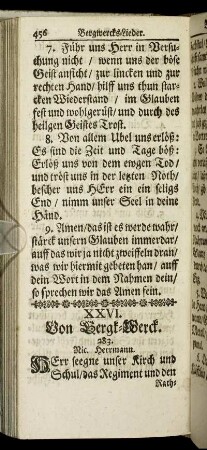 456 Bergwercks-Lieder.
7. Führ uns Herr in Versu-
chung nicht / wenn uns der böse
Geist anficht / zur lincken und zur
rechten Hand / hilff uns thun star-
cken Wiederstand / im Glauben
fest und wohlgerüst / und durch des
heilgen Geistes Trost.
8. Von allem Ubel uns erlöß:
Es sind die Zeit und Tage böß:
Erlöß uns von dem ewgen Tod /
und tröst uns in der letzten Noth /
bescher uns HErr ein ein seligs
End / nimm unser Seel in deine
Händ.
9. Amen / das ist es werde wahr /
stärck unsern Glauben immerdar /
auff das wir ja nicht zweiffeln dran /
was wir hiermit gebeten han / auff
dein Wort in dem Nahmen dein /
so sprechen wir das Amen fein.
XXVI.
Von Bergk-Werck.
283.
Nic. Herrmann.
HErr seegne unser Kirch und
Schul / das Regiment und den
Rath-